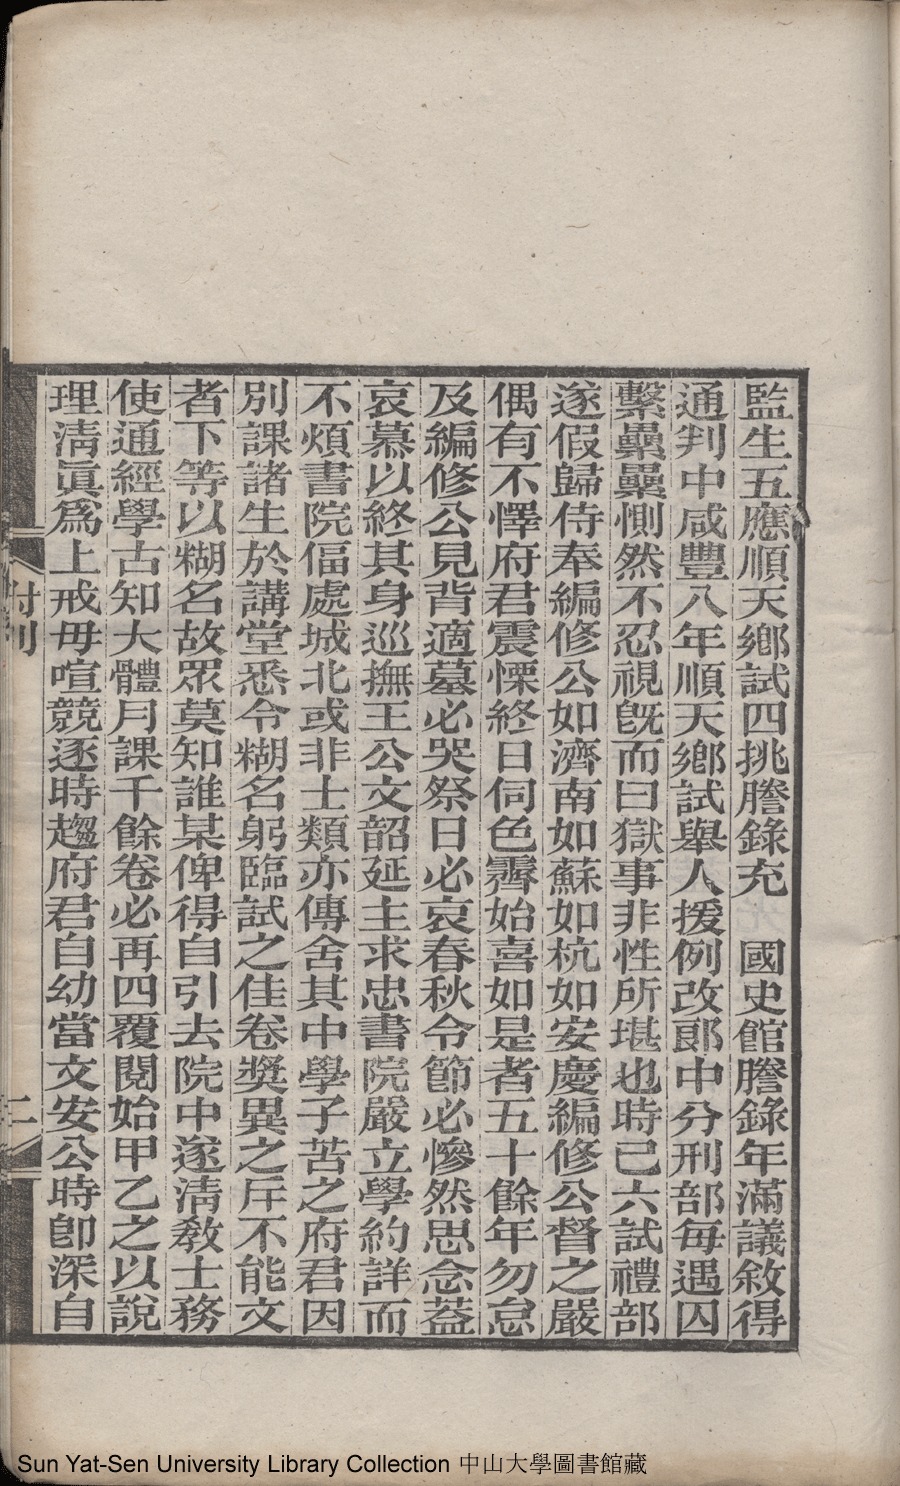 監生五應順天鄉試四挑謄錄充　國史館謄錄年滿議敘得
通判中咸豐八年順天鄉試舉人援例改郎中分刑部每遇囚
繫纍纍惻然不忍視旣而曰獄事非性所堪也時已六試禮部
遂假歸侍奉編修公如濟南如蘇如杭如安慶編修公督之嚴
偶有不懌府君震慄終日伺色霽始喜如是者五十餘年勿怠
及編修公見背適墓必哭祭日必哀春秋令節必慘然思念葢
哀慕以終其身巡撫王公文韶延主求忠書院嚴立學約詳而
不煩書院偪處城北或非士類亦傳舍其中學子苦之府君因
別課諸生於講堂悉令糊名躬臨試之佳卷獎異之斥不能文
者下等以糊名故眾莫知誰某俾得自引去院中遂淸敎士務
使通經學古知大體月課千餘卷必再四覆閱始甲乙之以說
理淸眞爲上戒毋喧競逐時趨府君自幼當文安公時卽深自
附刊
二
Sun Yat-Sen University Library Collection 中山大學圖書館藏